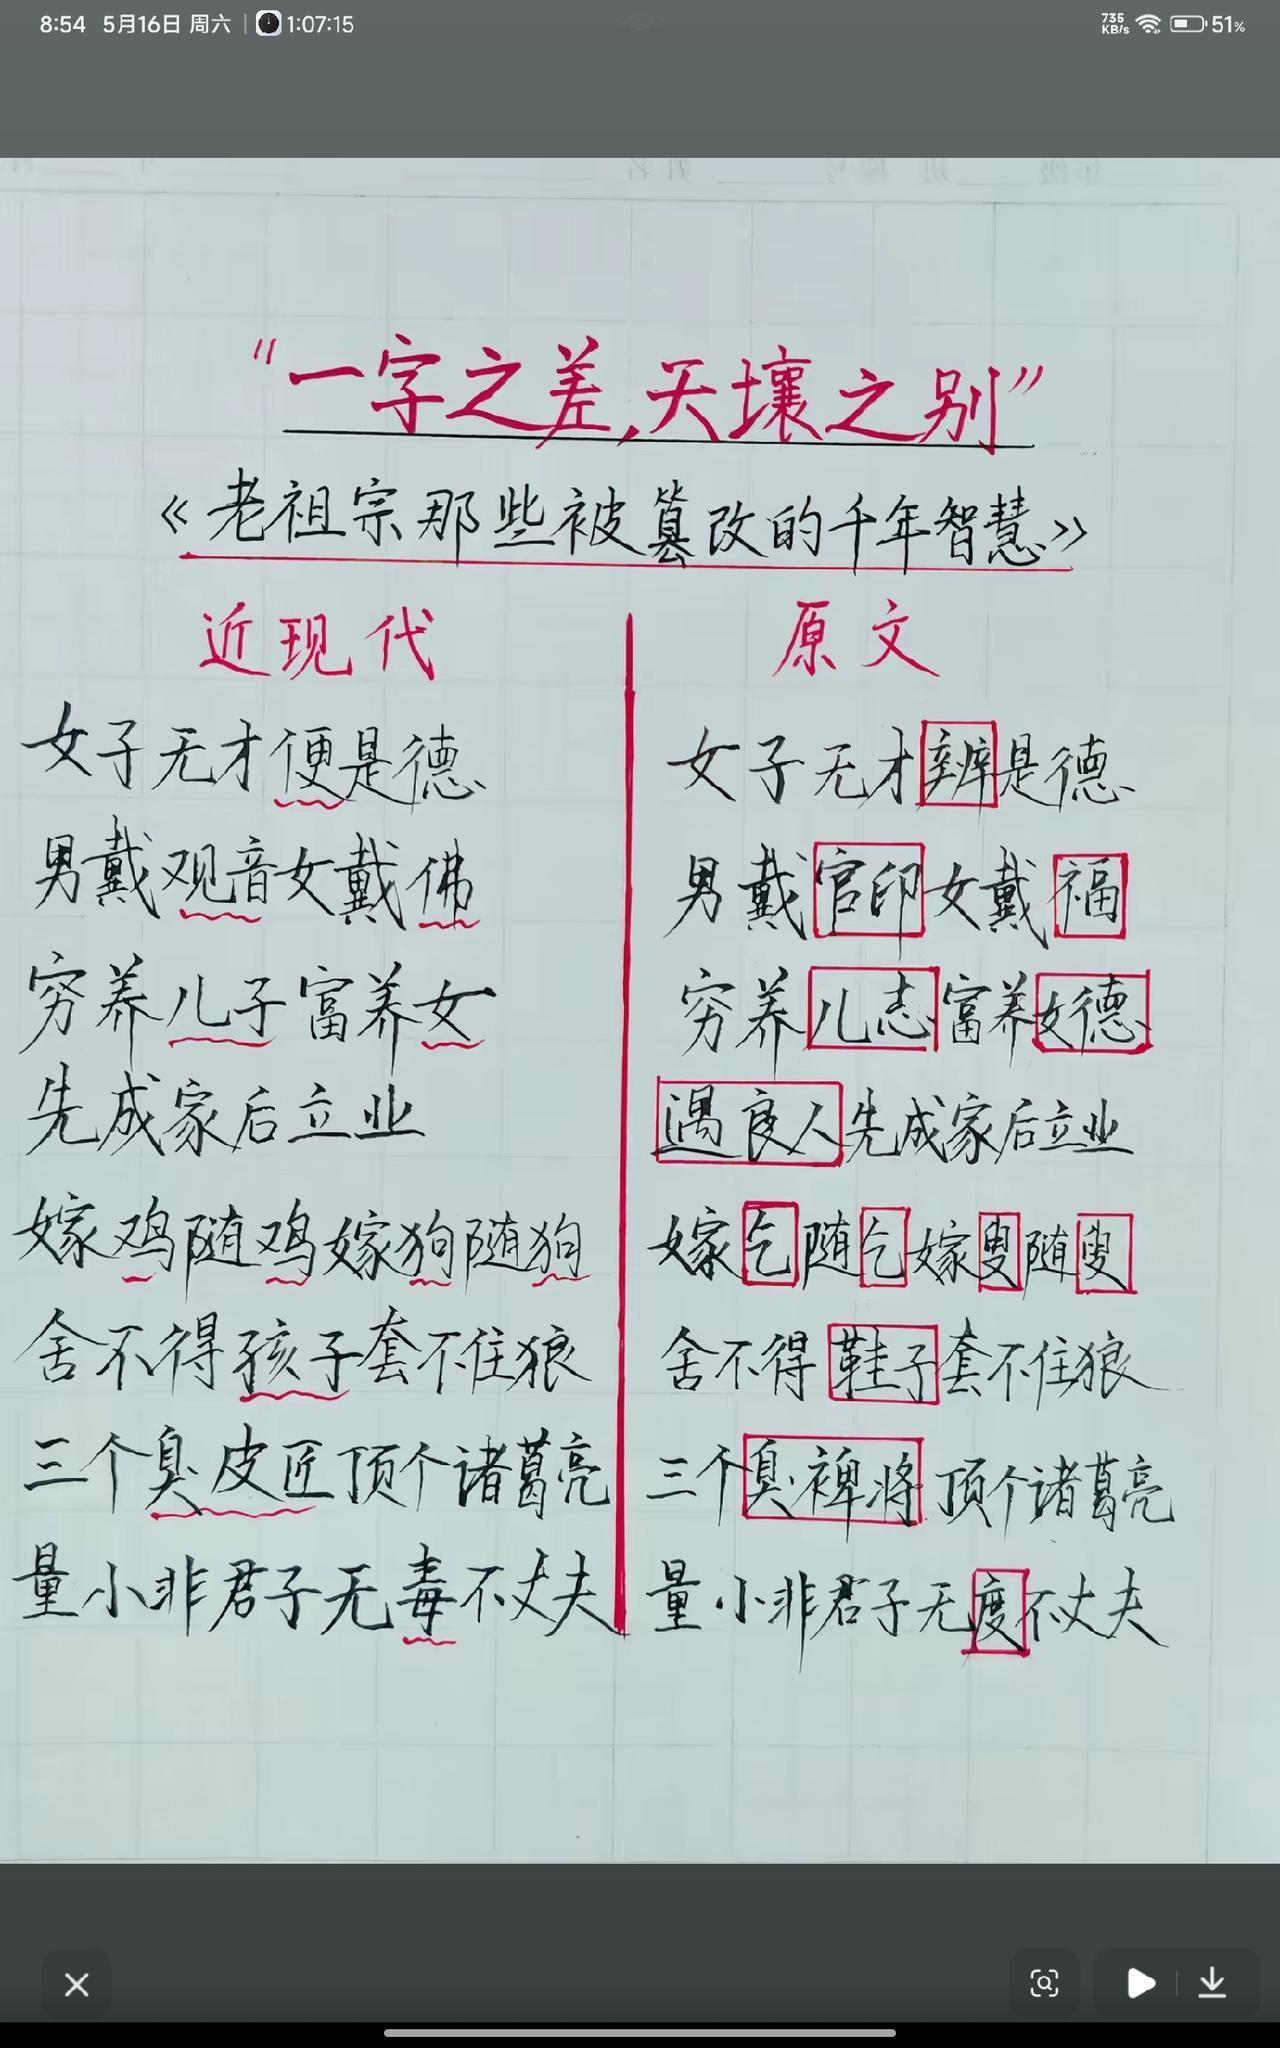 8:54 5月16日 周六 1:07:15 735 KB/s 51%
"一字之差,天壤之别"
《老祖宗那些被篡改的千年智慧》
近现代
女子无才便是德
男戴观音女戴佛
穷养儿子富养女
先成家后立业
嫁鸡随鸡嫁狗随狗
舍不得孩子套不住狼
三个臭皮匠顶个诸葛亮
量小非君子无毒不丈夫
原文
女子无才辨是德
男戴官印女戴福
穷养儿志富养女德
遇良人先成家后立业
嫁乞随乞嫁叟随叟
舍不得鞋子套不住狼
三个臭裨将顶个诸葛亮
量小非君子无度不丈夫